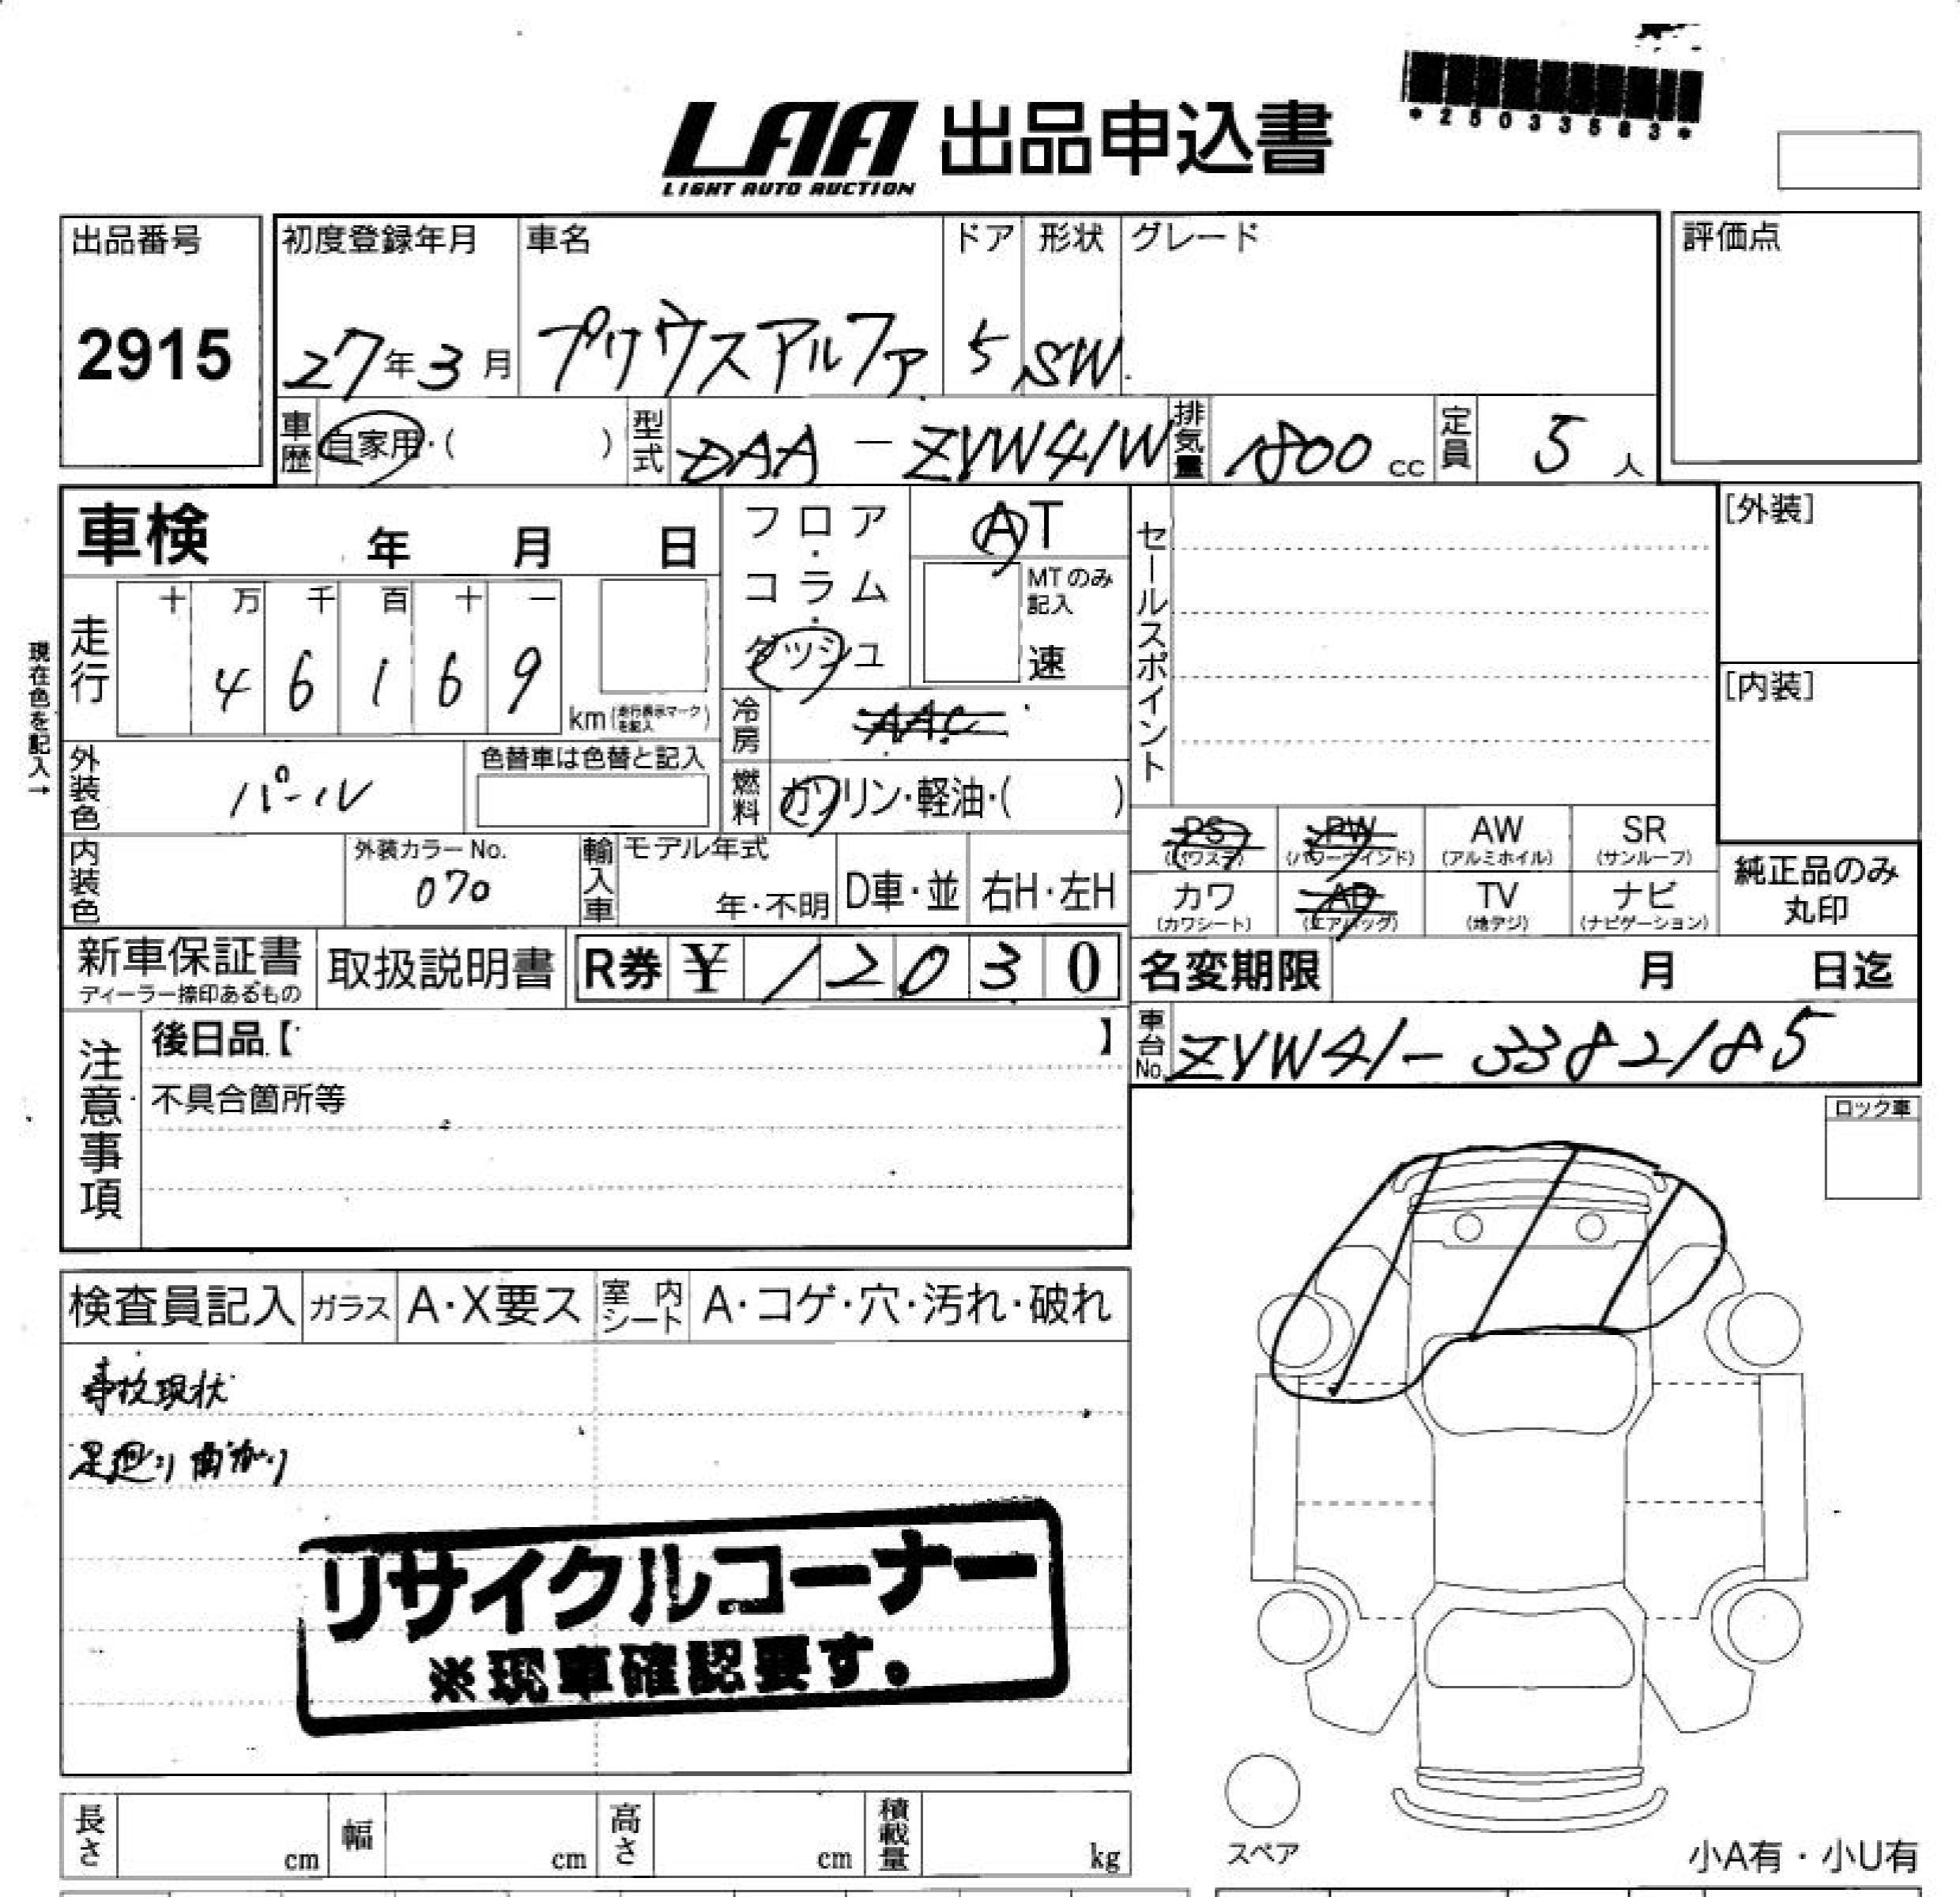 *25033583*
LAA 出品申込書
LIGHT AUTO AUCTION
出品番号 2915
初度登録年月 27年3月
車名 プリウスアルファ
ドア 5
形状 SW
グレード
評価点
車歴 自家用・( )
型式 DAA-ZVW41W
排気量 1800cc
定員 5人
車検 年 月 日
フロア・コラム・ダッシュ
AT
MTのみ記入 速
セールスポイント
[外装]
[内装]
現在色を記入→
走行 十 万 千 百 十 一
4 6 1 6 9
km(走行表示マークを記入)
冷房 AAC
外装色 パール
色替車は色替と記入
燃料 ガソリン・軽油・( )
内装色
外装カラーNo. 070
輸入車 モデル年式 年・不明
D車・並
右H・左H
PS(パワステ) PW(パワーウインド) AW(アルミホイル) SR(サンルーフ)
カワ(カワシート) AB(エアバッグ) TV(地デジ) ナビ(ナビゲーション)
純正品のみ
丸印
新車保証書
ディーラー捺印あるもの
取扱説明書
R券 ¥ 12030
名変期限 月 日迄
車台No. ZVW41-3382185
注意事項
後日品【 】
不具合箇所等
ロック車
検査員記入 ガラス A・X要ス 室内シート A・コゲ・穴・汚れ・破れ
事故現状
足廻り曲がり
リサイクルコーナー
※現車確認要す。
長さ cm 幅 cm 高さ cm 積載量 kg
スペア
小A有・小U有